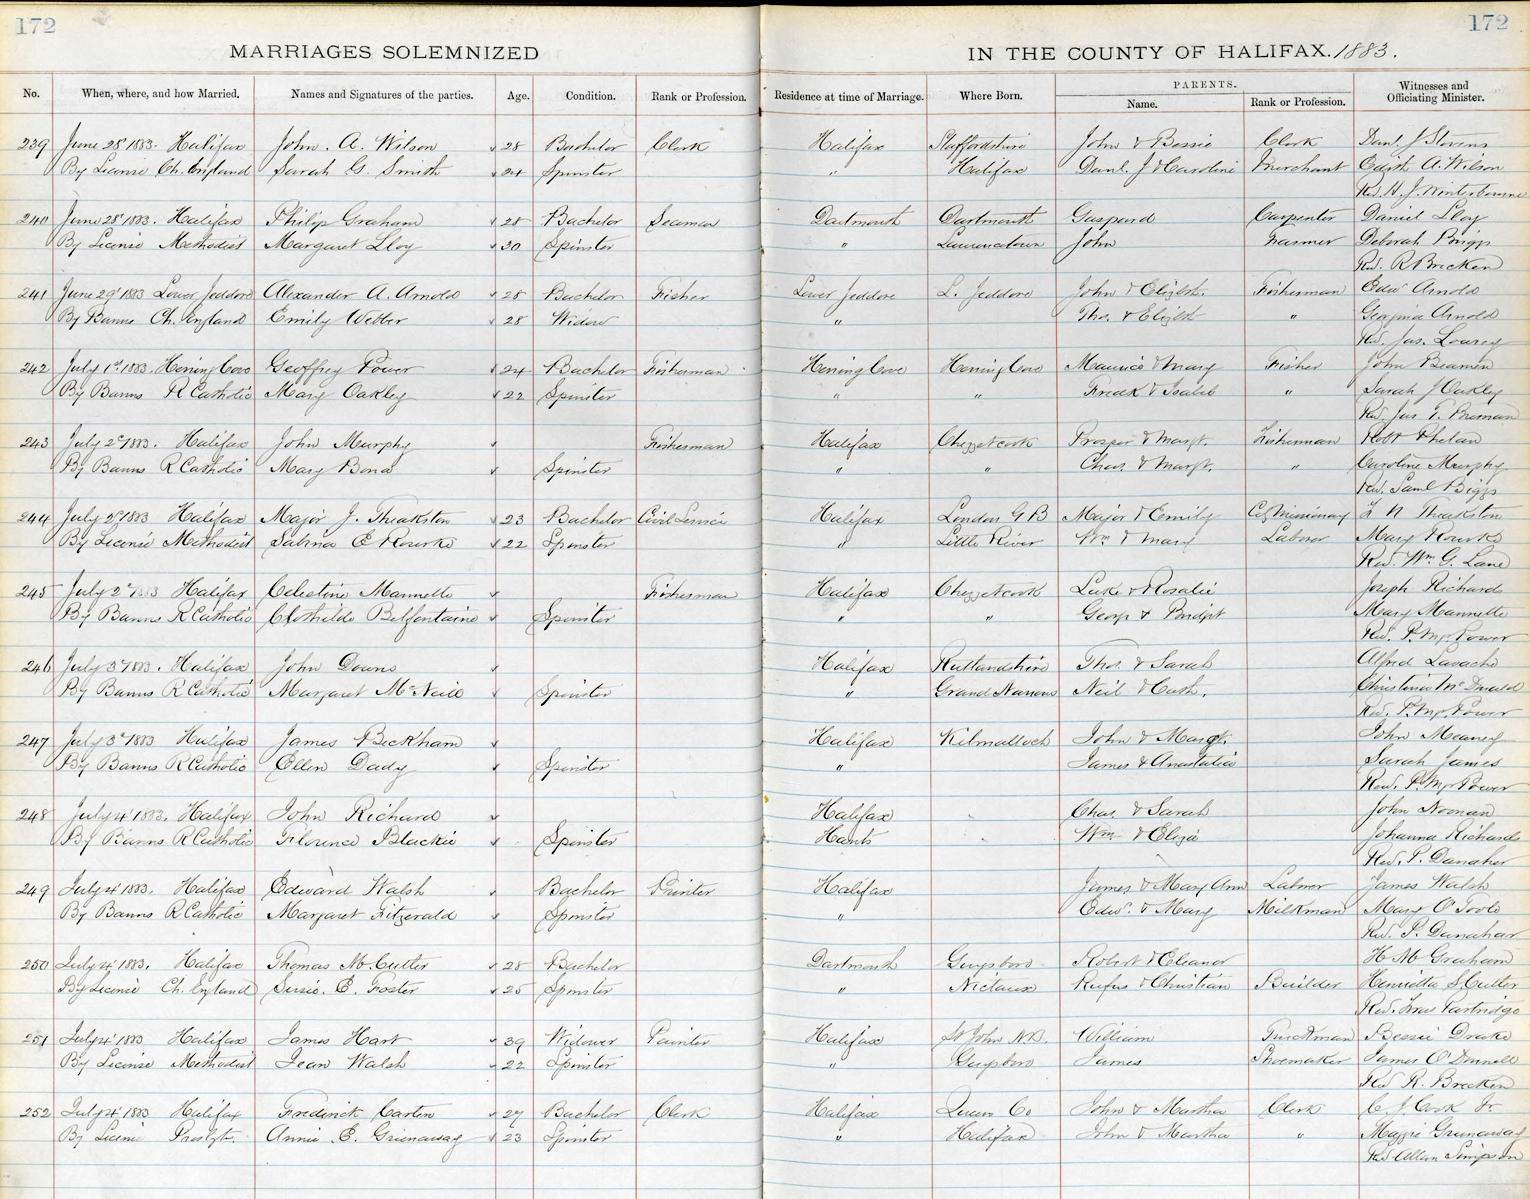 172 172
MARRIAGES SOLEMNIZED IN THE COUNTY OF HALIFAX. 1883.
PARENTS.
No. When, where, and how Married. Names and Signatures of the parties. Age. Condition. Rank or Profession. Residence at time of Marriage. Where Born. Name. Rank or Profession. Witnesses and Officiating Minister.
239 June 28" 1883. Halifax John. A. Wilson 28 Bachelor Clerk Halifax Staffordshire John & Bessie Clerk Danl. J Stevens
By License Ch. England Sarah G. Smith 24 Spinster " Halifax Danl. J & Caroline Merchant Edith A. Wilson
Rd. H. J. Winterbourne
240 June 28" 1883. Halifax Philip Graham 28 Bachelor Seaman Dartmouth Dartmouth Gaspard Carpenter Daniel Lloy
By License Methodist Margaret Lloy 30 Spinster " Lawrencetown John Farmer Deborah Briggs
Rd. R Brecken
241 June 29" 1883 Lower Jeddore Alexander A. Arnold 28 Bachelor Fisher Lower Jeddore L. Jeddore John & Elizbth. Fisherman Edw Arnold
By Banns Ch. England Emily Webber 28 Widow " Thos. & Elizbth " Georgina Arnold
Rd. Jas. Lowrey
242 July 1st 1883. Herring Cove Geoffrey Power 24 Bachelor Fisherman Herring Cove Herring Cove Maurice & Mary Fisher John Beamen
By Banns R Catholic Mary Oakley 22 Spinster " " Fredk & Isabel " Sarah J Oakley
Rd. Jas T.
243 July 2" 1883. Halifax John Murphy Fisherman Halifax Chezzetcook Prosper & Margt. Fisherman Robt Phelan
By Banns R Catholic Mary Bond Spinster " " Chas. & Margt. " Caroline Murphy
Rd. Saml Biggs
244 July 2" 1883 Halifax Major J. Theakston 23 Bachelor Civil Service Halifax London G B Major & Emily Cy Missionary Theakston
By License Methodist Sabina E Rourke 22 Spinster " Little River Wm & Mary Laborer Mary Rourke
Rev. Wm G. Lane
245 July 2" 1883 Halifax Celestine Mannette Fisherman Halifax Chezzetcook Luke & Rosalie Joseph Richards
By Banns R Catholic Clothilde Belfontaine Spinster " " George & Bridget Mary Mannette
Rd. P. Mgr. Power
246 July 3" 1883. Halifax John Downs Halifax Rutlandshire Thos. & Sarah Alfred Lavache
By Banns R Catholic Margaret McNeill Spinster " Grand Narrows Neil & Cath. Christina McDonald
Rd. P. Mgr. Power
247 July 3" 1883 Halifax James Beckham Halifax Kilmallock John & Margt. John Meaney
By Banns R Catholic Ellen Dady Spinster " James & Anastatia Sarah James
Rev. P. Mgr Power
248 July 4" 1883. Halifax John Richard Halifax Chas. & Sarah John Noonan
By Banns R Catholic Florence Blackie Spinster Hants Wm & Eliza Johanna Richards
Rd. P. Danaher
249 July 4" 1883. Halifax Edward Walsh Bachelor Painter Halifax James & Mary Ann Labrer James Walsh
By Banns R Catholic Margaret Fitzgerald Spinster " Edwd. & Mary Milkman Mary O'Toole
Rd. P. Danahar
250 July 4" 1883. Halifax Thomas M. Cutler 28 Bachelor Dartmouth Guysboro Robert & Eleanor H M Graham
By License Ch. England Susie. E. Foster 25 Spinster " Nictaux Rufus & Christian Builder Henrietta S Cutler
Rd. Partridge
251 July 4" 1883 Halifax James Hart 39 Widower Painter Halifax St John N.B. William Truckman Bessie Drake
By License Methodist Jean Walsh 22 Spinster " Guysboro James Shoemaker James O'Donnell
Rd R. Brecken
252 July 4" 1883 Halifax Frederick Carten 27 Bachelor Clerk Halifax Queens Co John & Martha Clerk C. J. Cook Jr
By License Presbyt. Annie E. Greenaway 23 Spinster " Halifax John & Martha " Maggie Greenaway
Rd. Allan Simpson